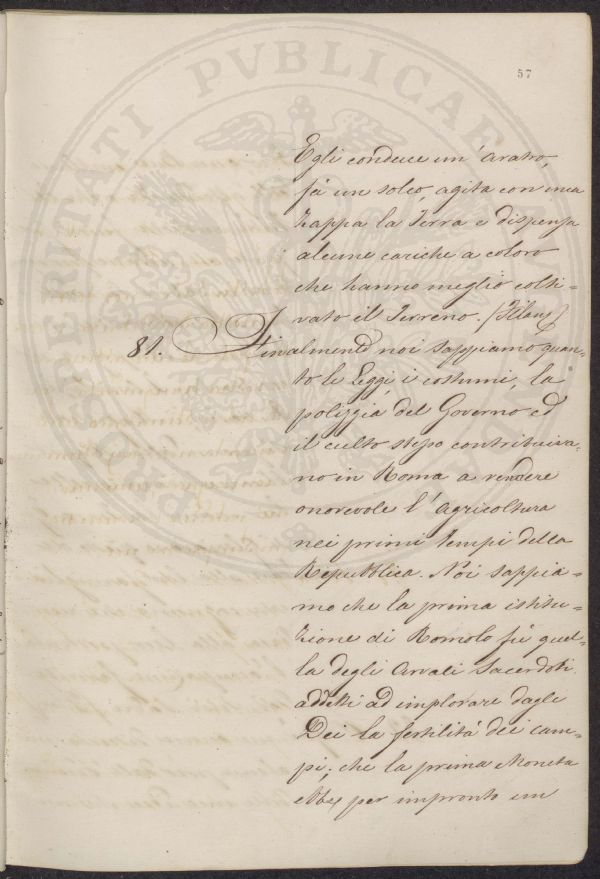 57
Egli conduce un' aratro,
fà un solco, agita con una
zappa la Terra e dispensa
alcune cariche a coloro
che hanno meglio colti-
vato il Terreno. (Filang)
81. Finalmente noi sappiamo quan-
to le Leggi, i costumi, la
polizzia del Governo ed
il culto stesso contribuiva-
no in Roma a rendere
onorevole l'agricoltura
nei primi tempi della
Repubblica. Noi sappia-
mo che la prima istitu-
zione di Romolo fù quel-
la degli Arvali Sacerdoti
addetti ad implorare dagli
Dei la fertilità dei cam-
pi; che la prima Moneta
ebbe per impronto un